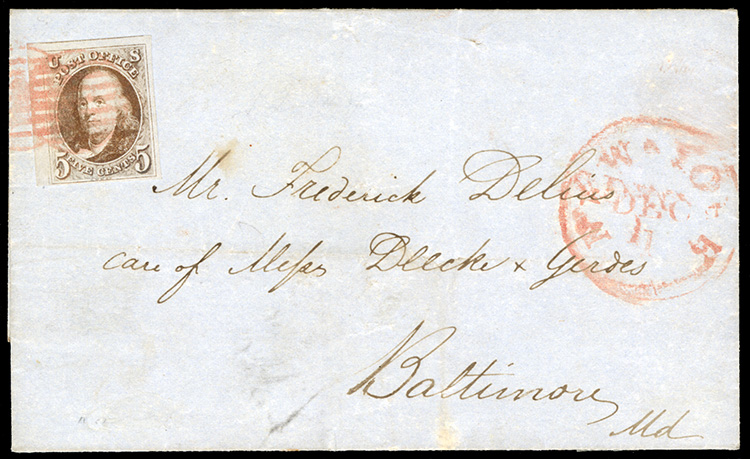 U S
POST OFFICE
5 FIVE CENTS 5
NEW YORK
DEC
11
Mr. Frederick Delius
care of Messrs Deecke & Gerdes
Baltimore
Md